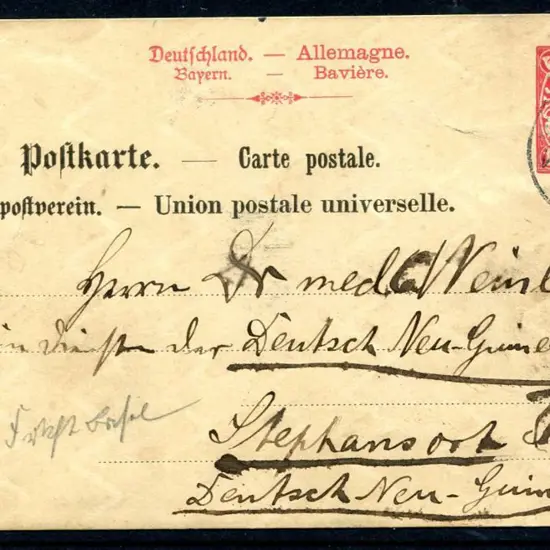 Deutschland. — Allemagne.
Bayern. — Bavière.
Postkarte. — Carte postale.
postverein. — Union postale universelle.
Herrn Dr med
in Diensten der Deutsch Neu-Guine
Stephansort
Deutsch Neu-Guin